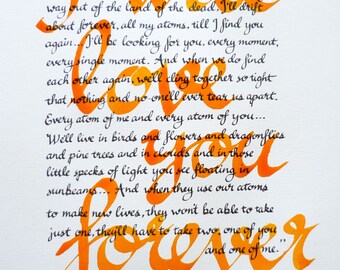 way out of the land of the dead. I'll drift
about forever, all my atoms, till I find you
again... I'll be looking for you, every moment,
every single moment. And when we do find
each other again, we'll cling together so tight
that nothing and no-one'll ever tear us apart.
Every atom of me and every atom of you...
We'll live in birds and flowers and dragonflies
and pine trees and in clouds and in those
little specks of light you see floating in
sunbeams.... And when they use our atoms
to make new lives, they won't be able to take
just one, they'll have to take two, one of you
and one of me."
love
you
forever